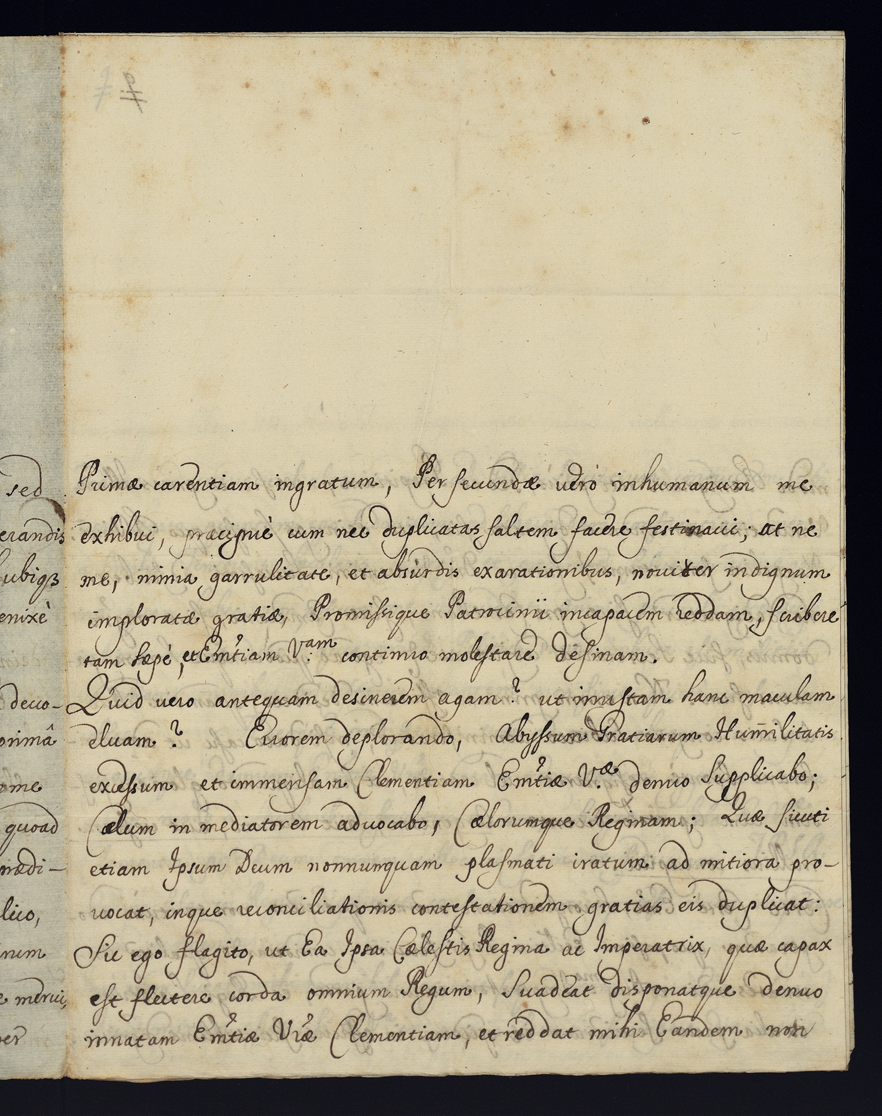 sed
erandis
ubiqȝ
enixè
deco-
primâ
ome
quoad
rædi-
lico,
num
e merui,
per
Primæ carentiam ingratum, Per secundæ verò inhumanum me
exhibui, præcipuè cum nec duplicatas saltem facere festinavi; at ne
me, nimia garrulitate, et absurdis exarationibus, noviter indignum
imploratæ gratiæ, Promissique Patrocinii incapacem reddam, scribere
tam sæpè, et Emtiam Vam continuo molestare desinam.
Quid vero antequam desinerem agam? ut inustam hanc maculam
eluam? Errorem deplorando, Abyssum Gratiarum Humilitatis
excessum et immensam Clementiam Emtiæ Væ denuo Supplicabo;
Cælum in mediatorem advocabo, Cælorumque Reginam; Quæ sicuti
etiam Ipsum Deum nonnunquam plasmati iratum ad mitiora pro-
vocat, inque reconciliationis contestationem gratias eis duplicat:
Sic ego flagito, ut Ea Ipsa Cælestis Regina ac Imperatrix, quæ capax
est flectere corda omnium Regum, Suadeat disponatque denuo
innatam Emtiæ Vræ Clementiam, et reddat mihi Eandem non